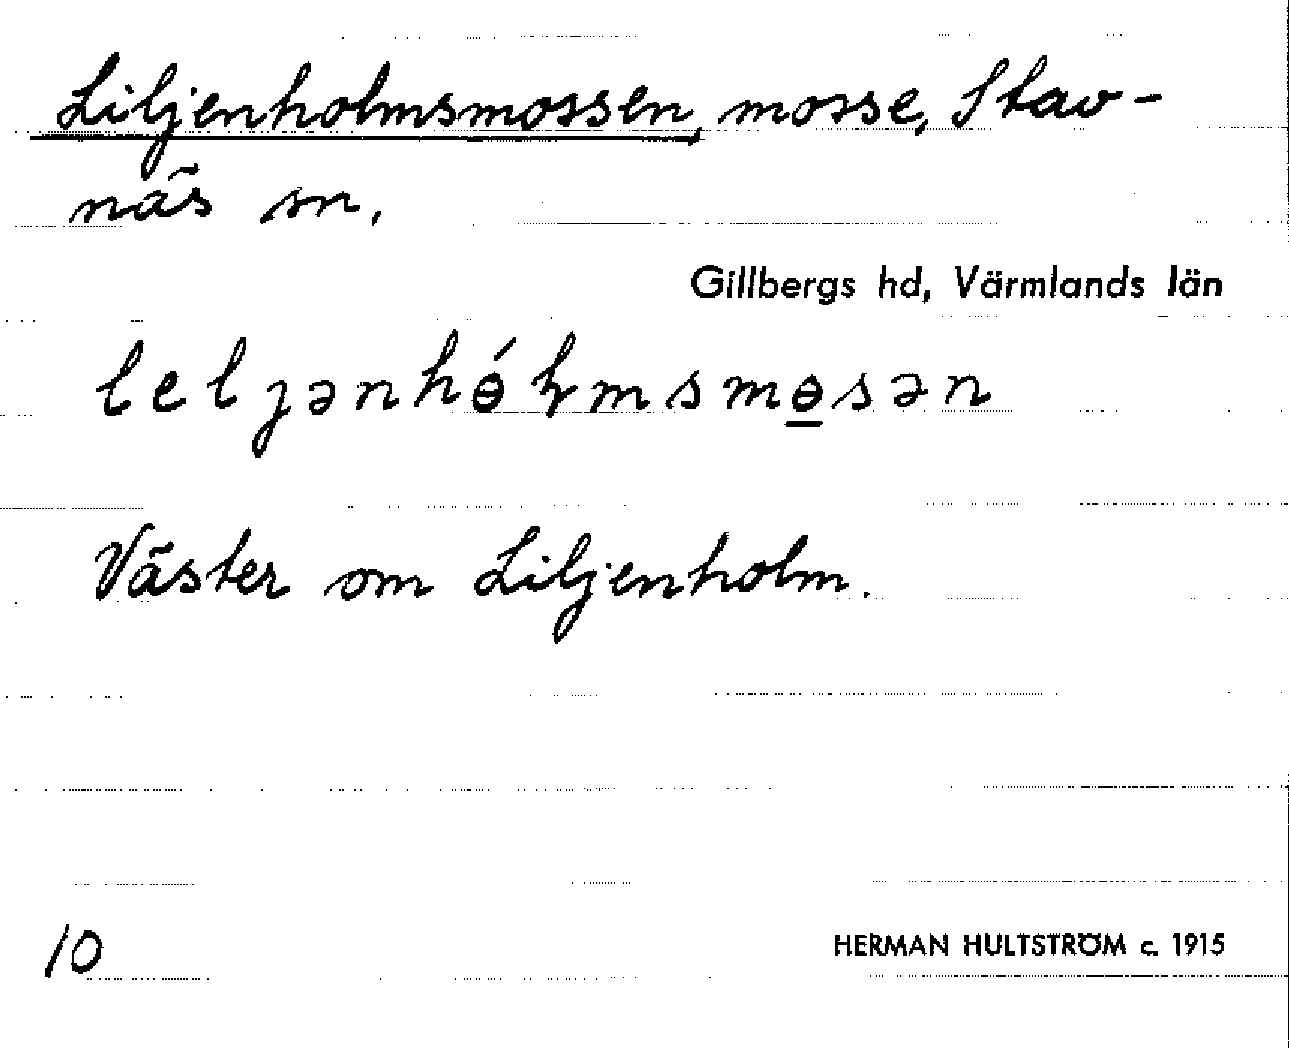 Liljenholmsmossen, mosse, Stav-
näs sn.
Gillbergs hd, Värmlands län
leljənhɵ́ɽmsmɵ̲sən
Väster om Liljenholm.
10
HERMAN HULTSTRÖM c. 1915